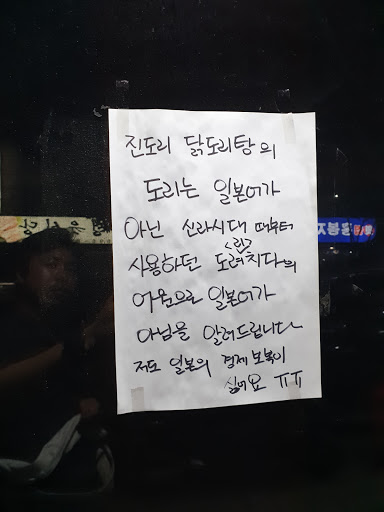 진도리 닭도리탕의
도리는 일본어가
아닌 신라시대 때부터
사용하던 도려<린>치다의
어원으로 일본어가
아님을 알려드립니다
저도 일본의 경제보복이
싫어요 ㅠㅠ